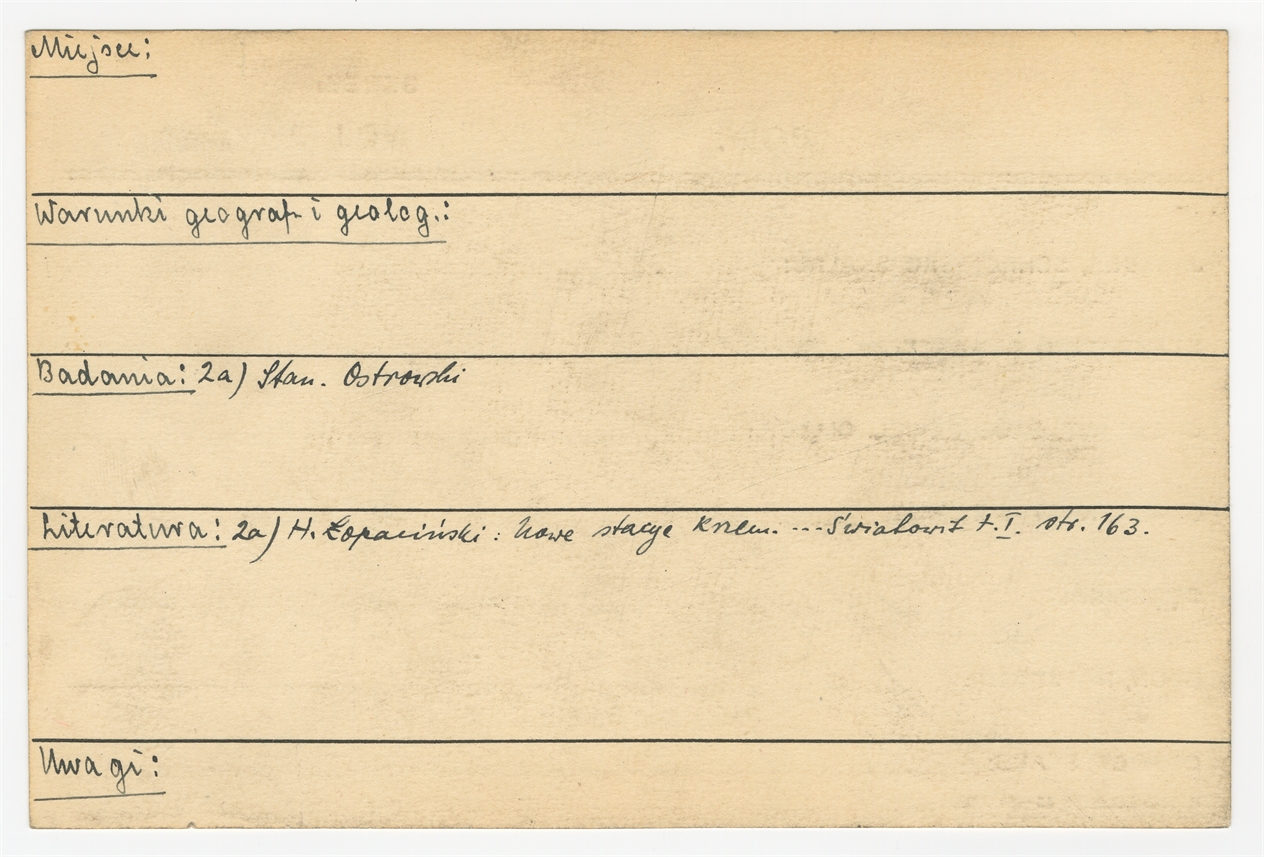 Miejsce:
Warunki geograf. i geolog.:
Badania: 2a) Stan. Ostrowski
Literatura: 2a) H. Łopaciński: Nowe stacye krzem. --- Światowit t. I. str. 163.
Uwagi: